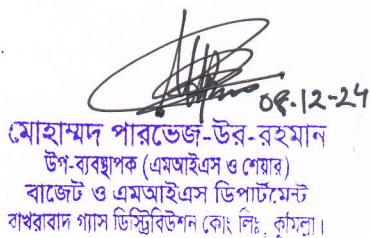 09.12-24
মোহাম্মদ পারভেজ-উর-রহমান
উপ-ব্যবস্থাপক (এমআইএস ও শেয়ার)
বাজেট ও এমআইএস ডিপার্টমেন্ট
বাখরাবাদ গ্যাস ডিস্ট্রিবিউশন কোং লিঃ, কুমিল্লা।